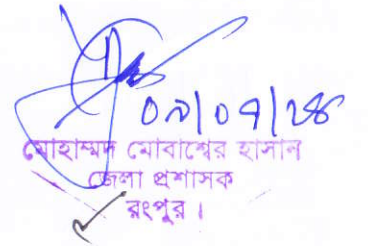 ০৯/০৭/২৪
মোহাম্মদ মোবাশ্বের হাসান
জেলা প্রশাসক
রংপুর ।